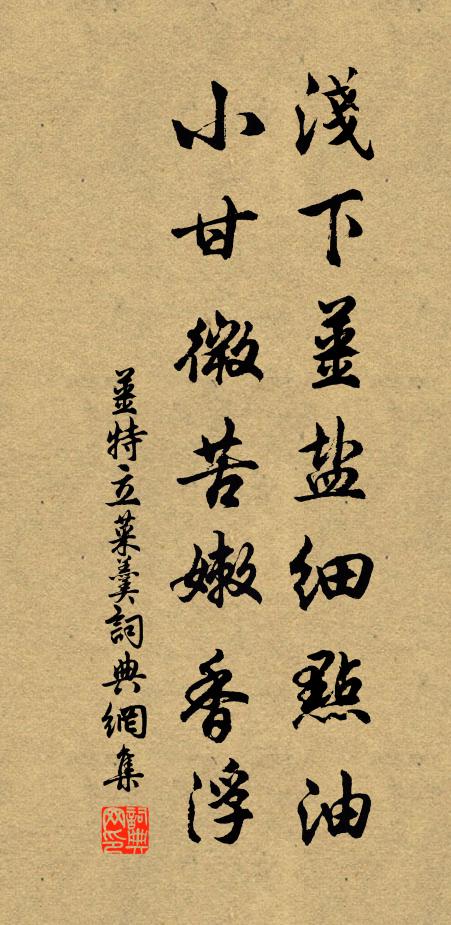 淺下薑盐細點油
小甘微苦嫩香浮
薑特立菜羹詞典網集
詞典网印